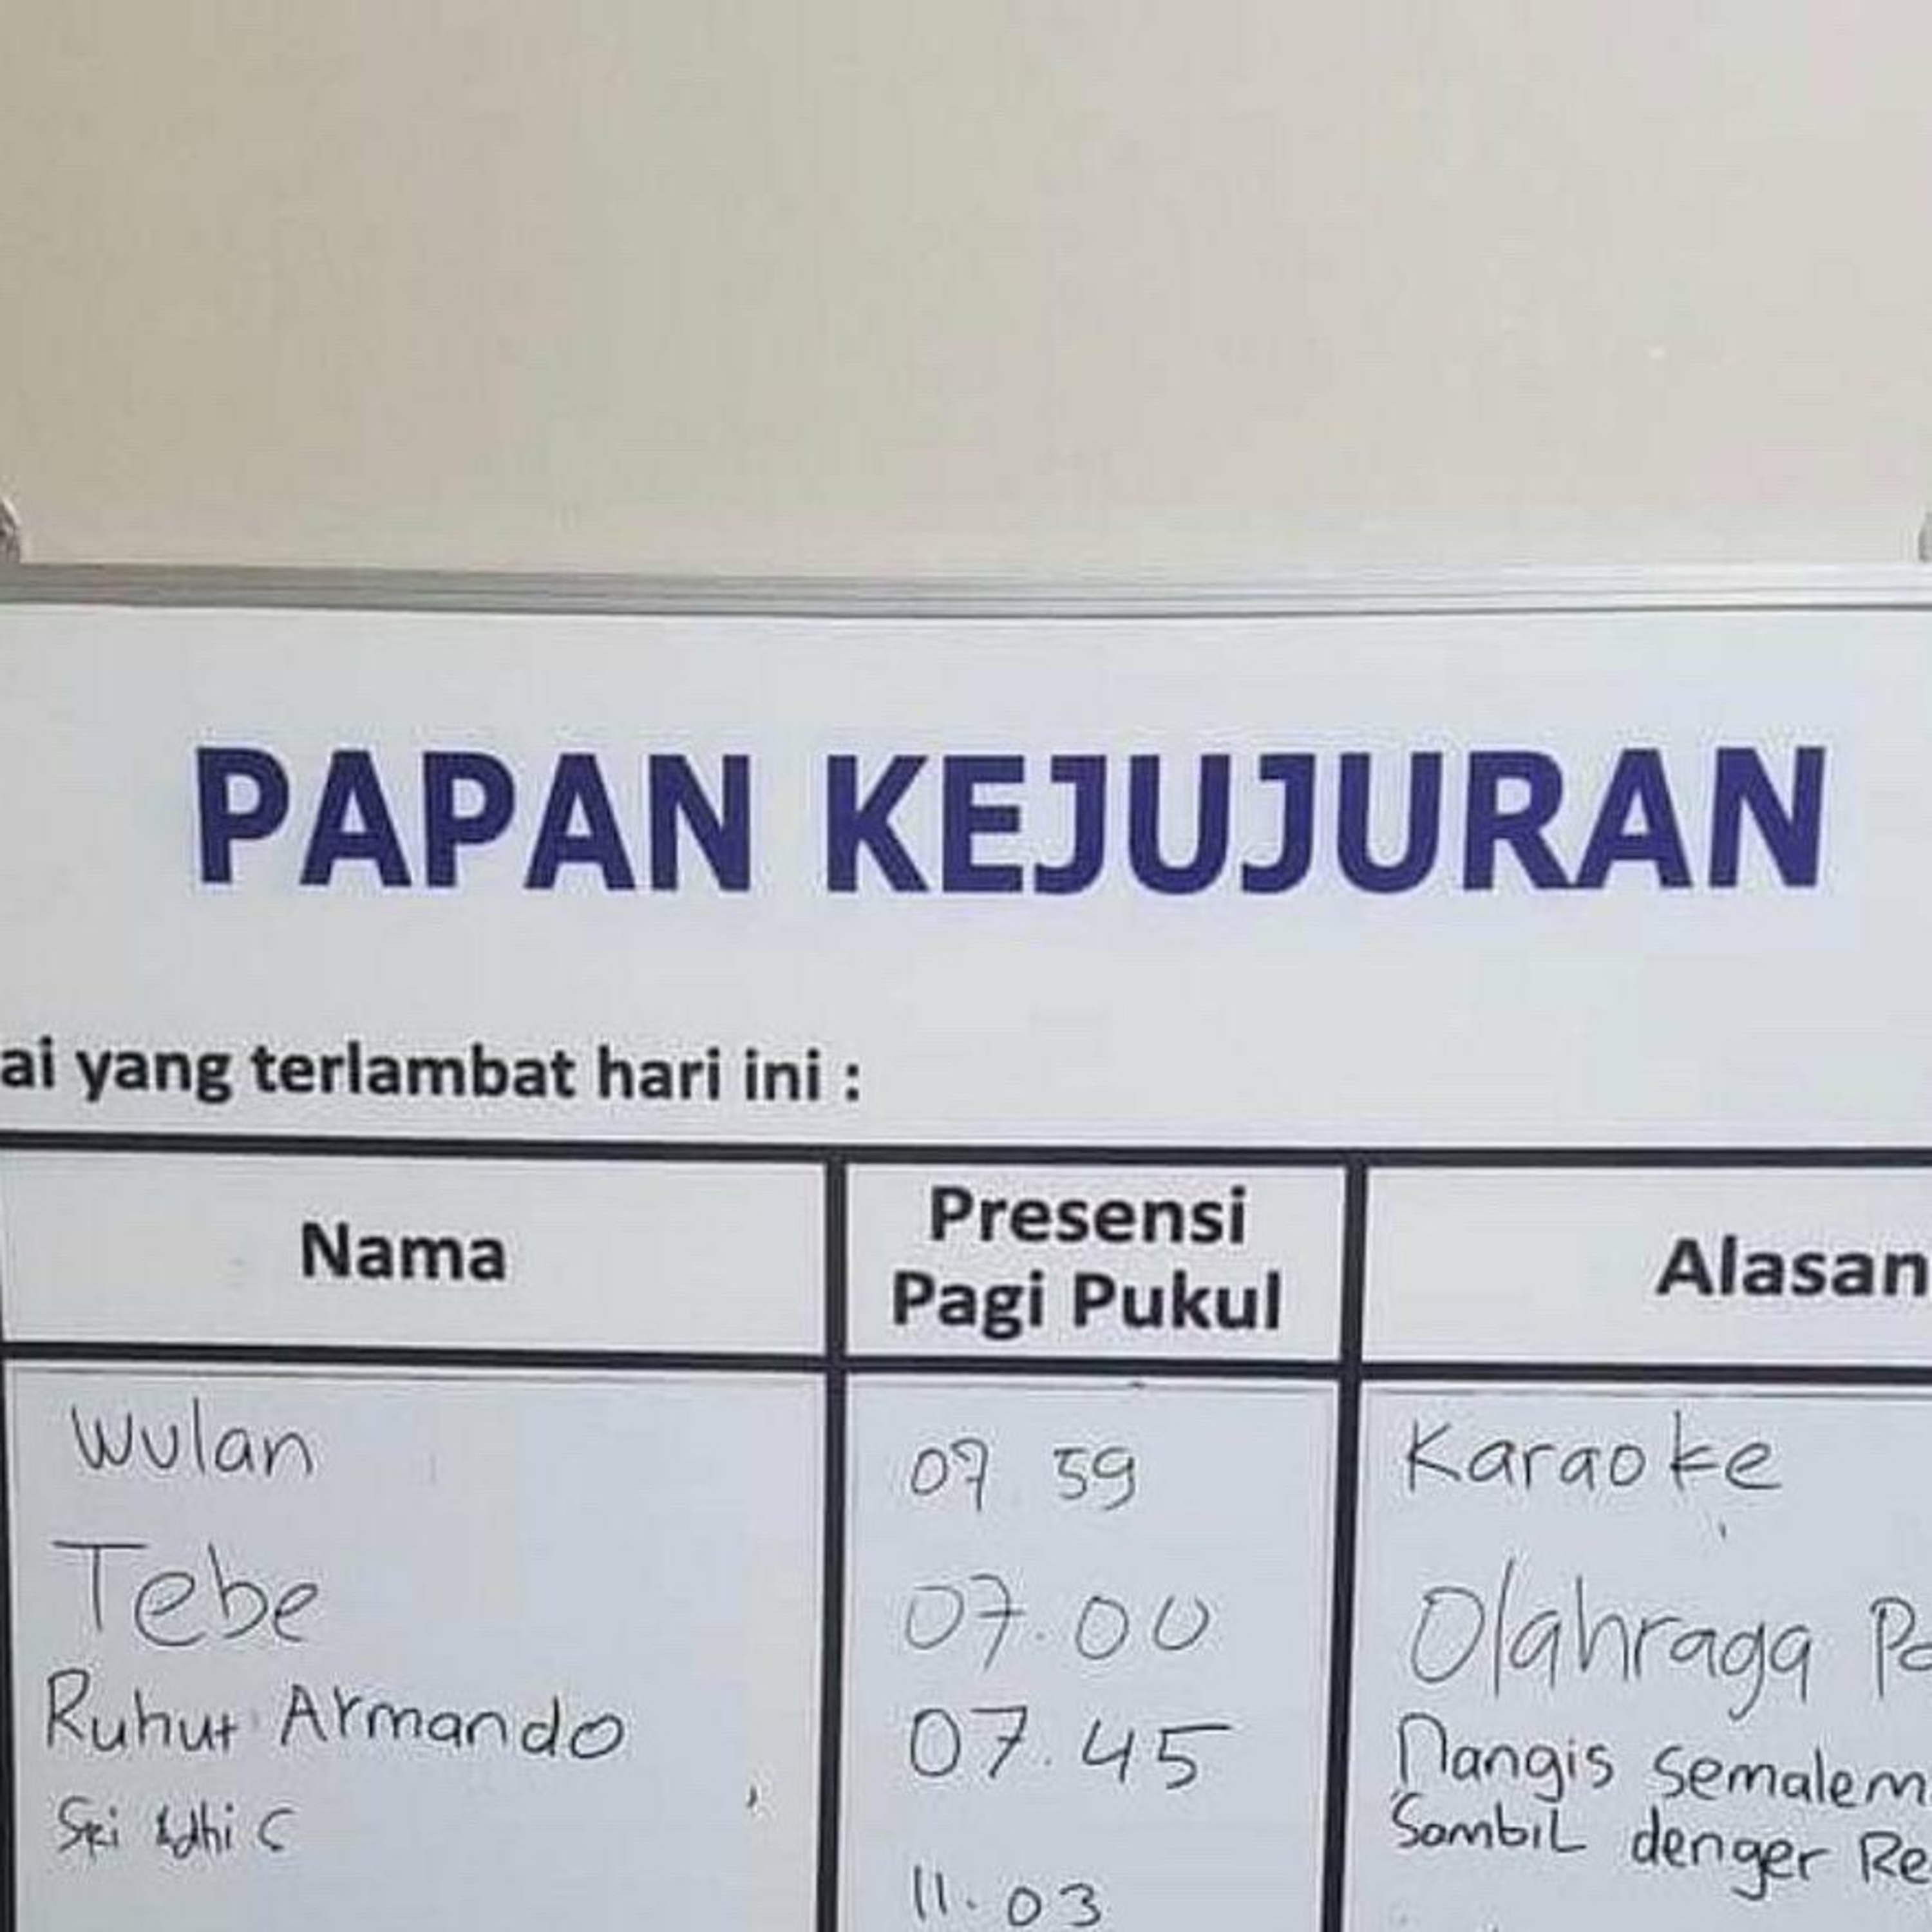 PAPAN KEJUJURAN
ai yang terlambat hari ini :
Nama
Presensi
Pagi Pukul
Alasan
Wulan 07 59 Karaoke
Tebe 07.00 Olahraga Pa
Ruhut Armando 07.45 Nangis semalem
Sambil denger Re
Sri Adhi C
11.03